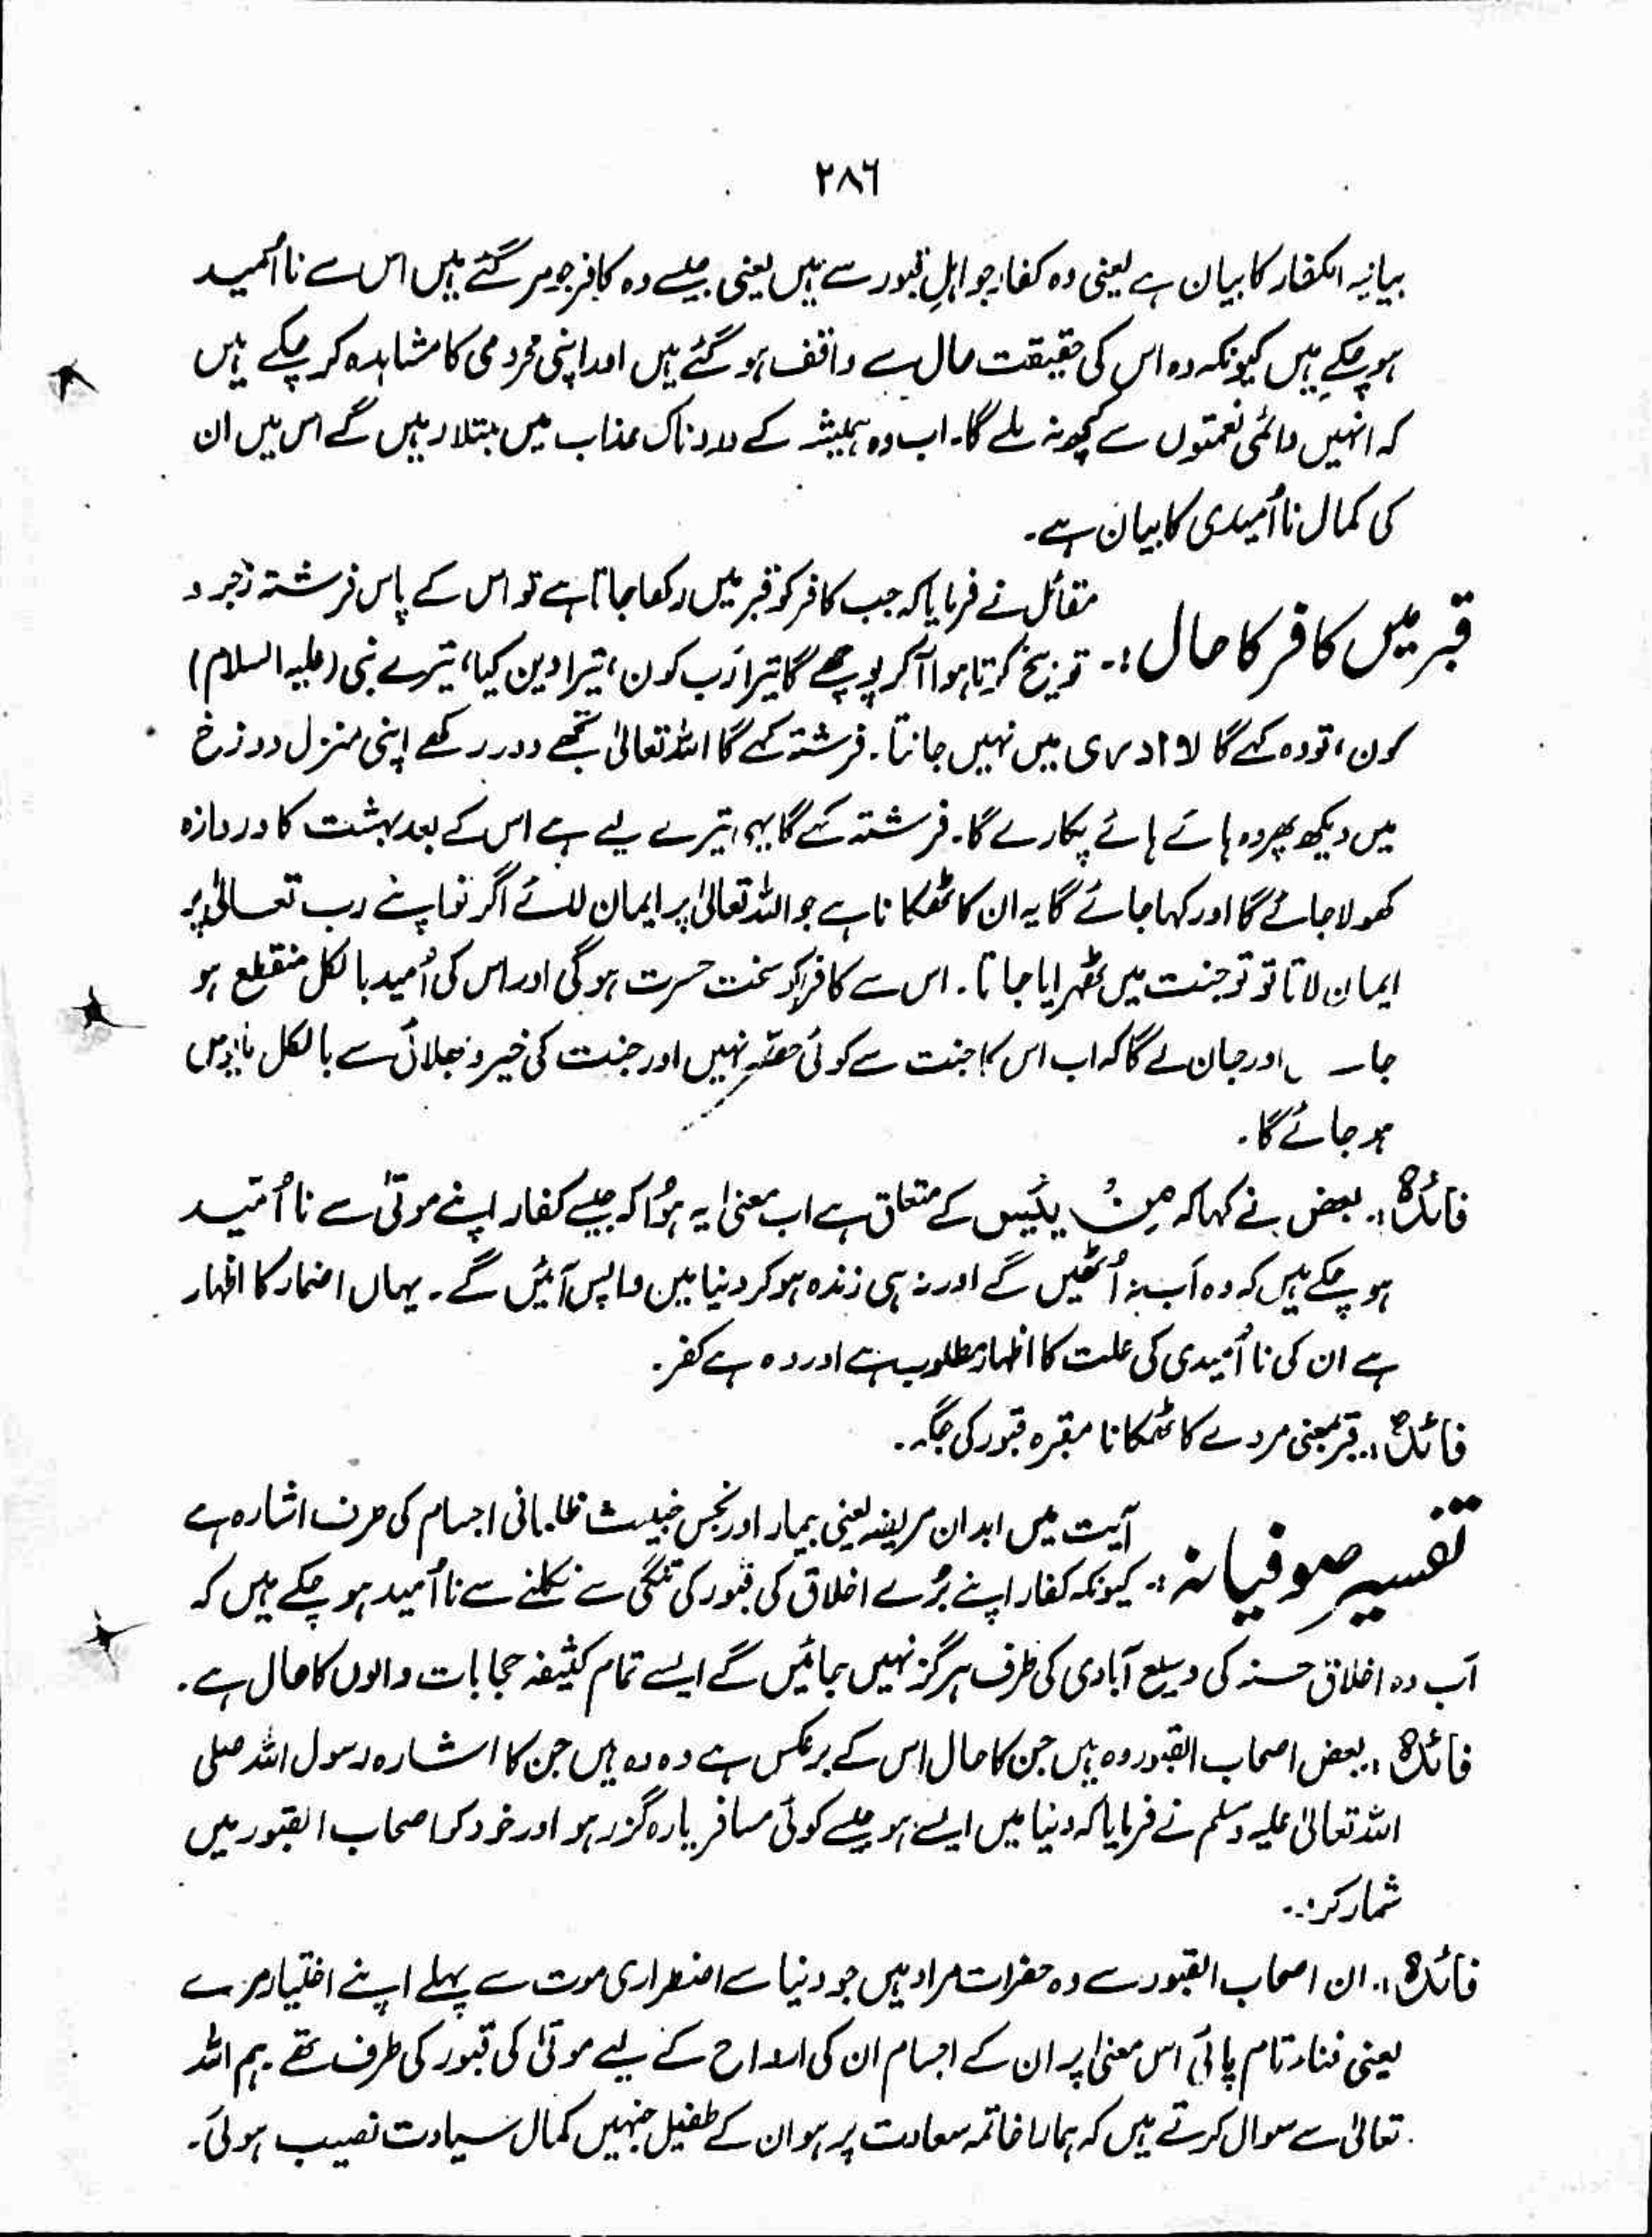 ۲۸۶
بیانیہ الکفار کا بیان ہے یعنی وہ کفار جو اہلِ قبور سے ہیں یعنی جیسے وہ کافر جو مر گئے ہیں اس سے نا اُمید
ہو چکے ہیں کیونکہ وہ اس کی حقیقت حال سے واقف ہو گئے ہیں اور اپنی محرومی کا مشاہدہ کر چکے ہیں
کہ انہیں دائمی نعمتوں سے کچھ نہ ملے گا۔ اب وہ ہمیشہ کے درد ناک عذاب میں مبتلا رہیں گے اس میں ان
کی کمال نا اُمیدی کا بیان ہے۔
مقاتل نے فرمایا کہ جب کافر کو قبر میں رکھا جاتا ہے تو اس کے پاس فرشتہ زجر و
قبر میں کافر کا حال :۔ توبیخ کرتا ہوا آ کر پوچھے گا تیرا رَب کون، تیرا دین کیا، تیرے نبی (علیہ السلام)
کون، تو وہ کہے گا لا ادری میں نہیں جانتا۔ فرشتہ کہے گا اللہ تعالیٰ تجھے دور رکھے اپنی منزل دوزخ
میں دیکھ پھر وہ ہائے ہائے پکارے گا۔ فرشتہ کہے گا یہی تیرے لیے ہے اس کے بعد بہشت کا دروازہ
کھولا جائے گا اور کہا جائے گا یہ ان کا ٹھکانا ہے جو اللہ تعالیٰ پر ایمان لائے اگر تو اپنے رب تعالیٰ پر
ایمان لاتا تو تو جنت میں ٹھہرایا جاتا۔ اس سے کافر کو سخت حسرت ہو گی اور اس کی اُمید بالکل منقطع ہو
اور جان لے گا کہ اب اس کا جنت سے کوئی حصّہ نہیں اور جنت کی خیر و بھلائی سے بالکل مایوس
ہو جائے گا۔
فائدہ :۔ بعض نے کہا کہ مِنْ یئیس کے متعلق ہے اب معنیٰ یہ ہوُا کہ جیسے کفار اپنے موتیٰ سے نا اُمّید
ہو چکے ہیں کہ وہ اَب نہ اُٹھیں گے اور نہ ہی زندہ ہو کر دنیا میں واپس آئیں گے۔ یہاں اضمار کا اظہار
ہے ان کی نا اُمیدی کی علت کا اظہار مطلوب ہے اور وہ ہے کفر۔
فائدہ :۔ قبر بمعنی مردے کا ٹھکانا مقبرہ قبور کی جگہ۔
آیت میں ابدان مریضہ یعنی بیمار اور نجس خبیث ظلمانی اجسام کی طرف اشارہ ہے
تفسیر صوفیانہ :۔ کیونکہ کفار اپنے بُرے اخلاق کی قبور کی تنگی سے نکلنے سے نا اُمید ہو چکے ہیں کہ
اَب وہ اخلاق حسنہ کی وسیع آبادی کی طرف ہرگز نہیں جائیں گے ایسے تمام کثیفہ حجابات والوں کا حال ہے۔
فائدہ :۔ بعض اصحاب القبور وہ ہیں جن کا حال اس کے برعکس ہے وہ وہ ہیں جن کا اشارہ رسول اللہ صلی
اللہ تعالیٰ علیہ وسلم نے فرمایا کہ دنیا میں ایسے ہو جیسے کوئی مسافر یا رہ گزر ہو اور خود کو اصحاب القبور میں
شمار کر۔
فائدہ :۔ ان اصحاب القبور سے وہ حضرات مراد ہیں جو دنیا سے اضطراری موت سے پہلے اپنے اختیار مرے
یعنی فناء تام پائی اس معنیٰ پر ان کے اجسام ان کی ارواح کے لیے موتیٰ کی قبور کی طرف تھے۔ ہم اللہ
تعالیٰ سے سوال کرتے ہیں کہ ہمارا خاتمہ سعادت پر ہو ان کے طفیل جنہیں کمال سیادت نصیب ہوئی۔